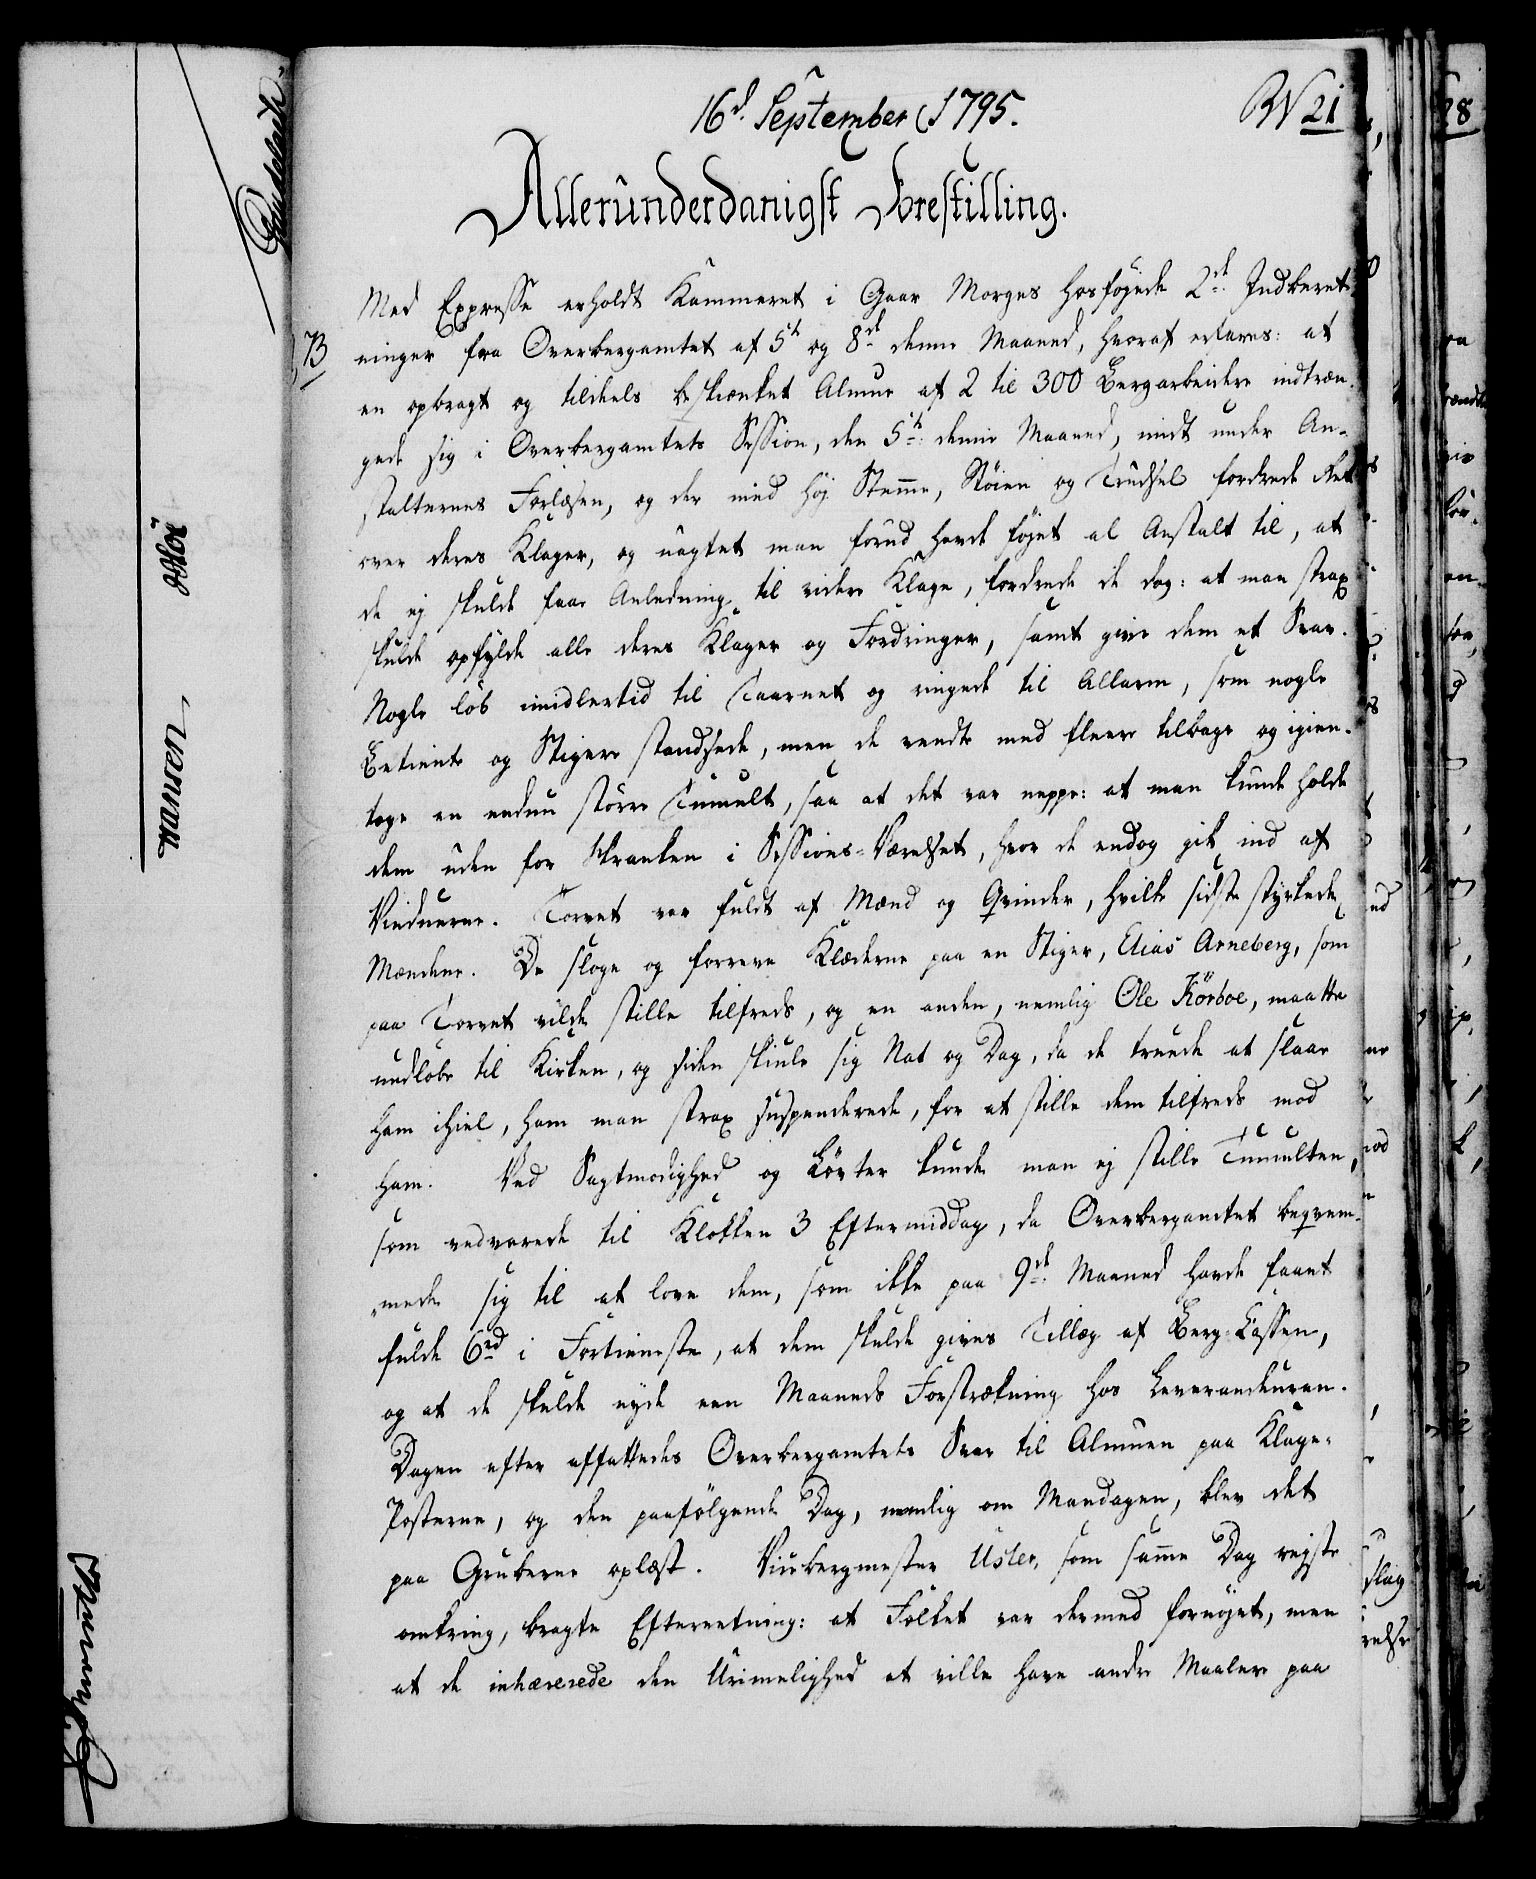 16d. September 1795.
21
Allerunderdanigst Forestilling.
Med Expresse erholdt Kammeret i Gaar Morges hosføyede 2de Indberet-
73
ninger fra Overbergamtet af 5te og 8de denne Maaned, hvoraf erfares: at
en opbragt og tildeels beskienket Almue af 2 til 300 Bergarbeidere indtræn-
gede sig i Overbergamtets Session, den 5te denne Maaned, midt under An-
stalternes Forlæsen, og der med høj Stemme, Støien og Trudsel fordrede Ret
over deres Klager, og uagtet man forud havde føjet al Anstalt til, at
de ej skulde faae Anledning til videre Klage, fordrede de dog: at man strax
skulde opfylde alle deres Klager og Fordringer, samt give dem et Svar.
Nogle løb imidlertid til Taarnet og ringede til Allarm, som nogle
Betiente og Stigere standsede, men de rendte med fleere tilbage og igien-
toge en endnu større Tumult, saa at det var neppe: at man kunde holde
dem uden for Skranken i Sessions-Værelset, hvor de endog gik ind af
Vinduerne. Torvet var fuldt af Mænd og Qvinder, hvilke sidste styrkede
Mændene. De sloge og forreve Klæderne paa en Stiger, Elias Arneberg, som
paa Torvet vilde stille tilfreds, og en anden, nemlig Ole Körboe, maatte
undløbe til Kirken, og siden skiule sig Nat og Dag, da de truede at slaae
ham ihiel, ham man strax suspenderede, for at stille dem tilfreds mod
ham. Ved Sagtmodighed og Løvter kunde man ej stille Tumulten,
som vedvarede til Klokken 3 Eftermiddag, da Overbergamtet beqvem-
mede sig til at love dem, som ikke paa 9de Maaned havde faaet
fulde 6rd i Fortieneste, at dem skulde gives Tillæg af Berg-Cassen,
og at de skulde nyde een Maaneds Forstrækning hos Leverandeuren.
Dagen efter affattedes Overbergamtets Svar til Almuen paa Klage-
Posterne, og den paafølgende Dag, nemlig om Mandagen, blev det
paa Gruberne oplæst. Vicebergmester Usler, som samme Dag rejste
omkring, bragte Efterretning: at Folket var dermed fornøjet, men
at de inhærerede den Urimelighed at ville have andre Maalere paa